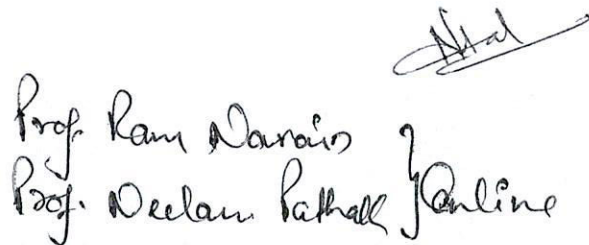 Prof. Ram Narain
Prof. Neelam Pathak } Online